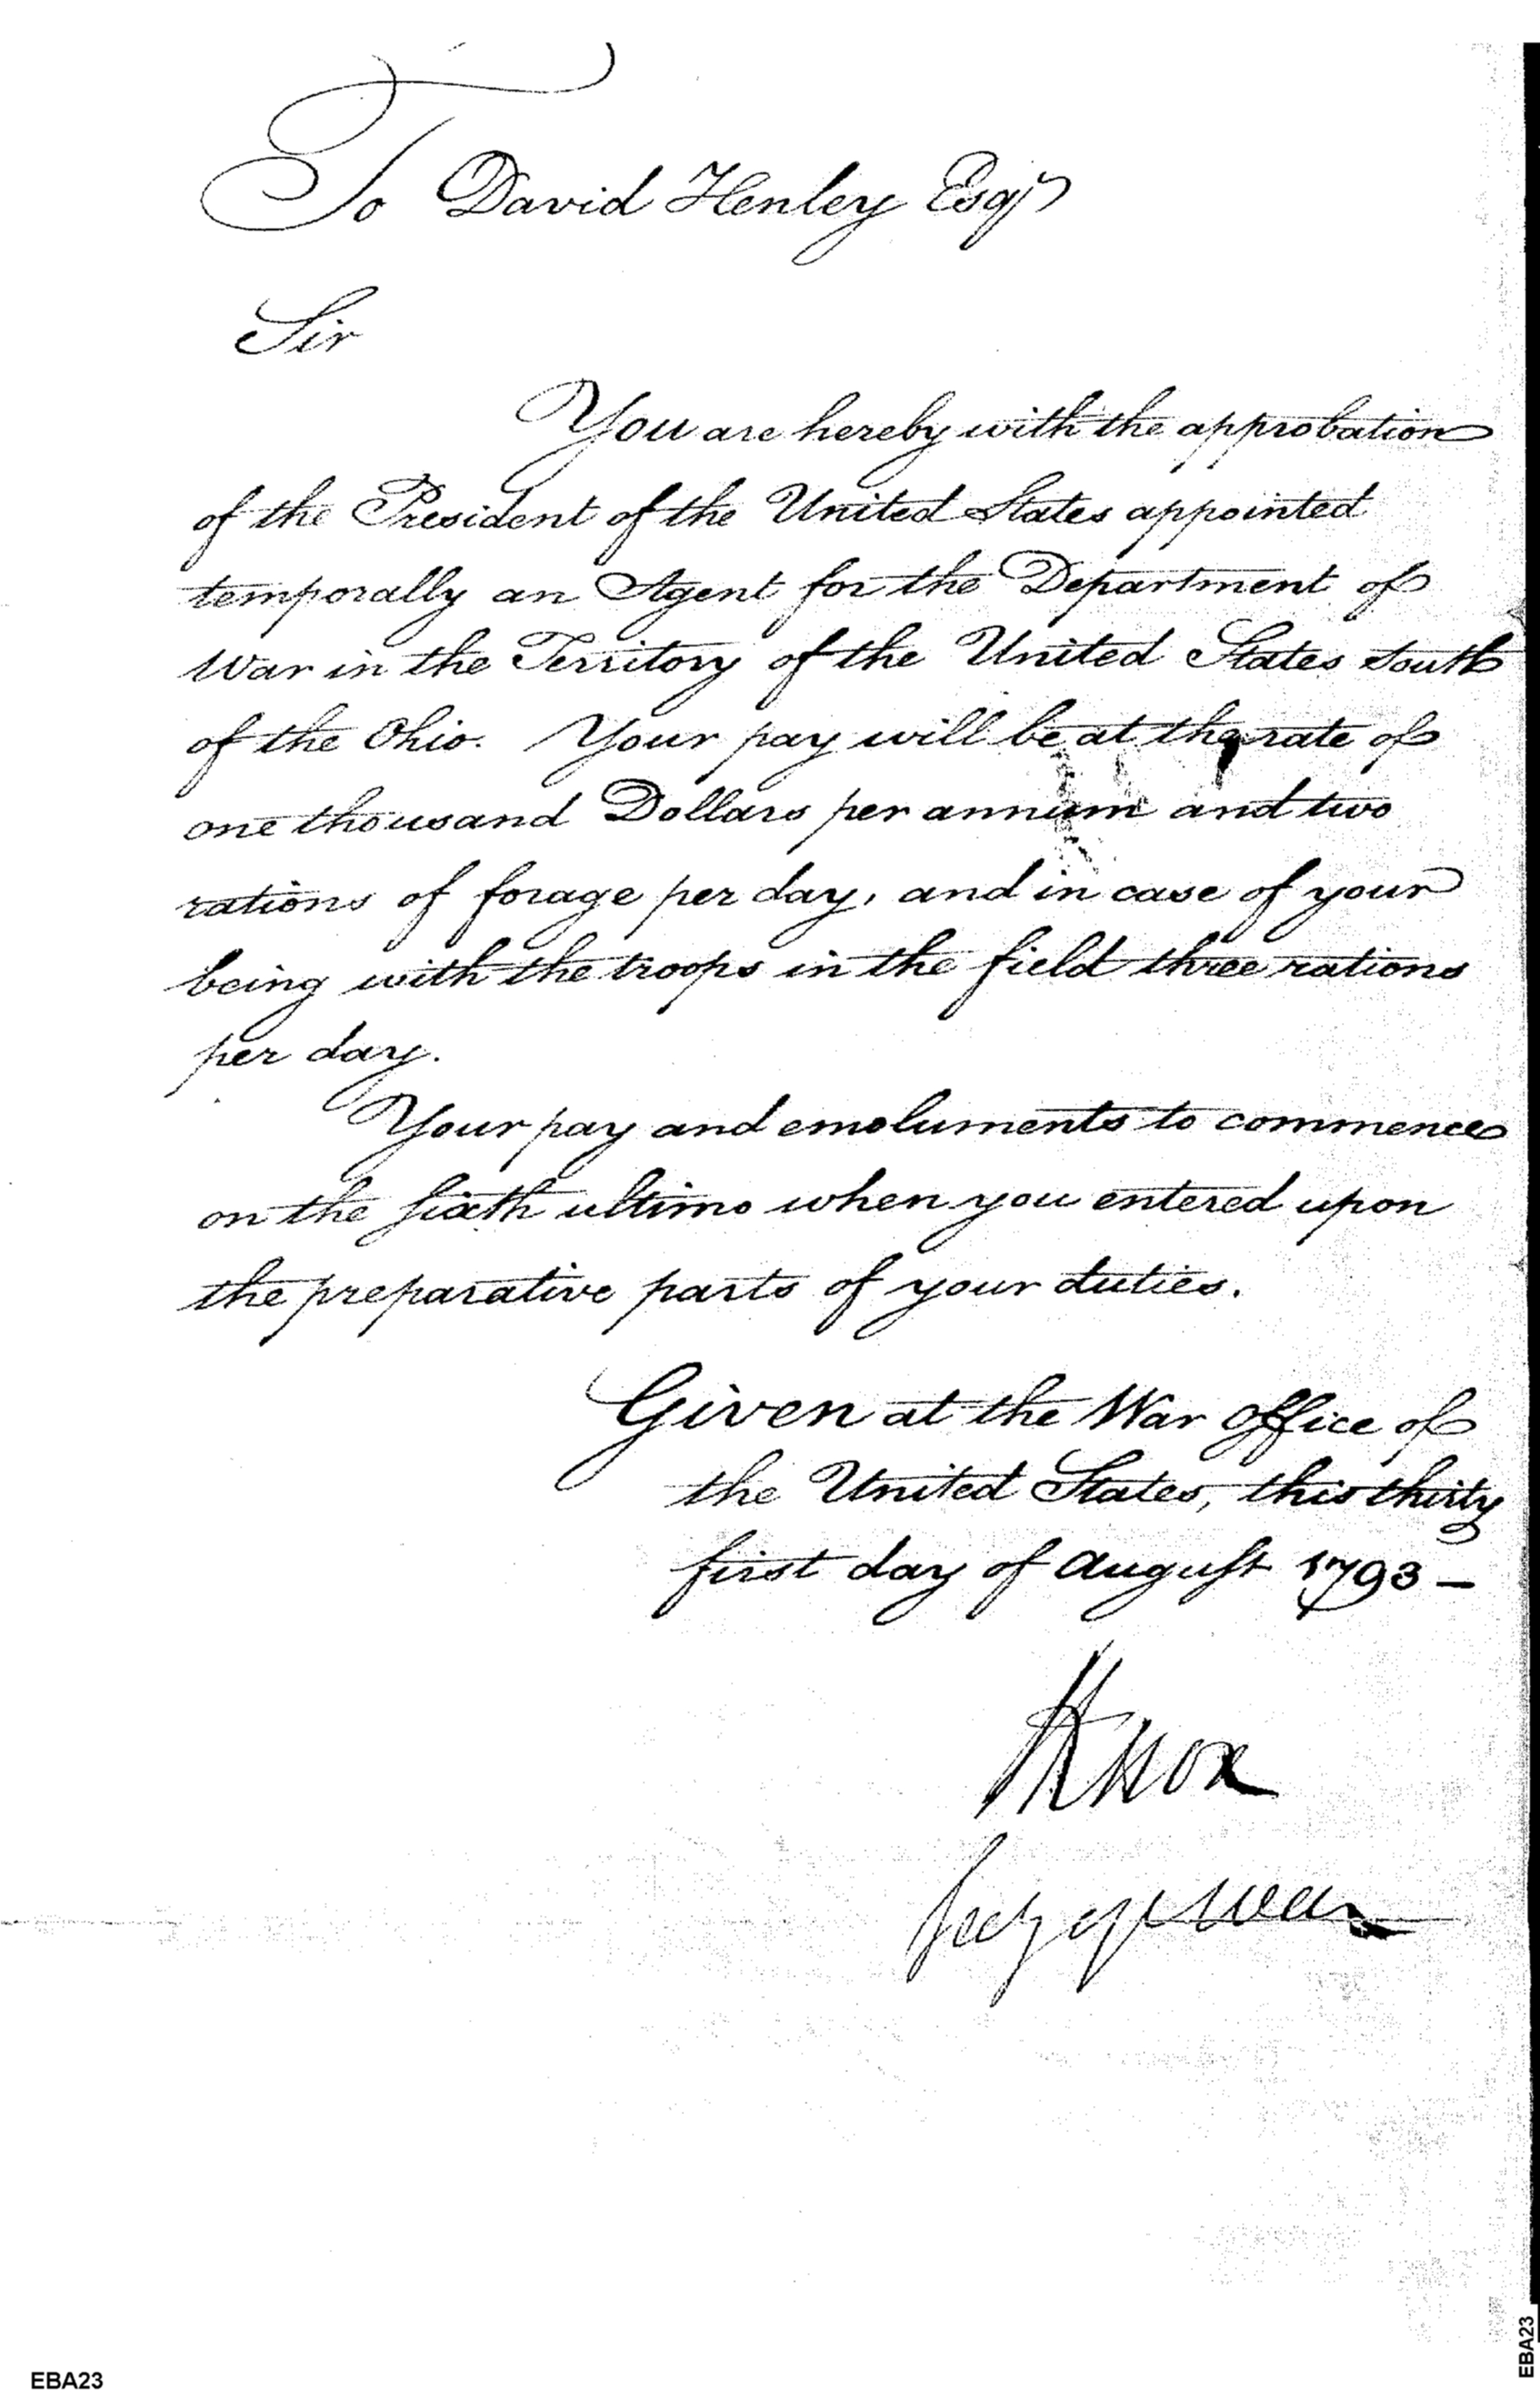 To David Henley Esqr
Sir
You are hereby with the approbation
of the President of the United States appointed
temporally an Agent for the Department of
War in the Territory of the United States South
of the Ohio. Your pay will be at the rate of
one thousand Dollars per annum and two
rations of forage per day, and in case of your
being with the troops in the field three rations
per day.
Your pay and emoluments to commence
on the sixth ultimo when you entered upon
the preparative parts of your duties.
Given at the War Office of
the United States, this thirty
first day of August 1793 —
HKnox
Secy of War
EBA23
EBA23